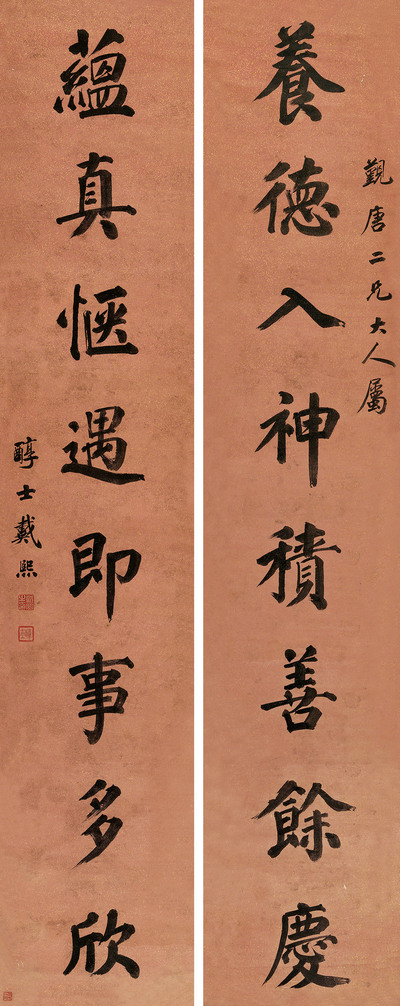 觀唐二兄大人屬
養德入神積善餘慶
蘊真愜遇即事多欣
醇士戴熙